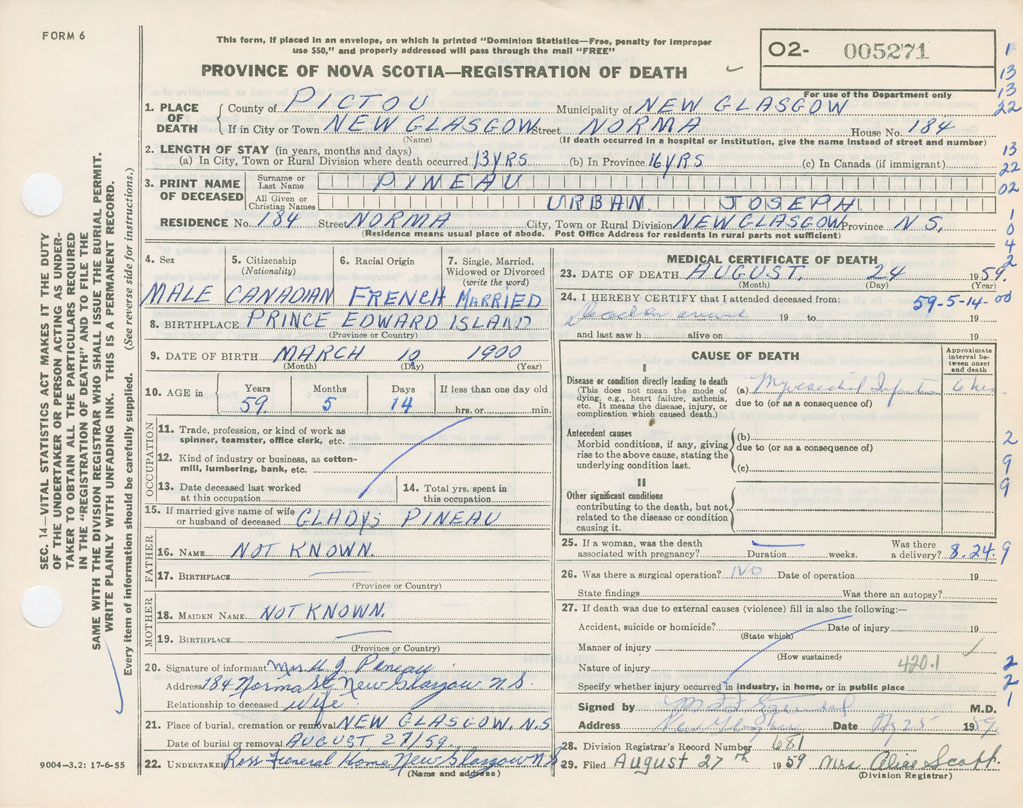 FORM 6
This form, if placed in an envelope, on which is printed "Dominion Statistics—Free, penalty for improper
use $50," and properly addressed will pass through the mail "FREE"
PROVINCE OF NOVA SCOTIA—REGISTRATION OF DEATH
O2- 005271
For use of the Department only
1. PLACE OF DEATH
County of PICTOU Municipality of NEW GLASGOW
If in City or Town NEW GLASGOW Street NORMA House No. 184
(Name) (If death occurred in a hospital or institution, give the name instead of street and number)
2. LENGTH OF STAY (in years, months and days)
(a) In City, Town or Rural Division where death occurred 13 YRS (b) In Province 16 YRS (c) In Canada (if immigrant)
3. PRINT NAME OF DECEASED
Surname or Last Name PINEAU
All Given or Christian Names URBAN JOSEPH
RESIDENCE No. 184 Street NORMA City, Town or Rural Division NEW GLASGOW Province N S.
(Residence means usual place of abode. Post Office Address for residents in rural parts not sufficient)
4. Sex
MALE
5. Citizenship (Nationality)
CANADIAN
6. Racial Origin
FRENCH
7. Single, Married, Widowed or Divorced (write the word)
MARRIED
8. BIRTHPLACE PRINCE EDWARD ISLAND
(Province or Country)
9. DATE OF BIRTH MARCH 10 1900
(Month) (Day) (Year)
10. AGE in
Years Months Days If less than one day old
59. 5 14 hrs. or min.
OCCUPATION
11. Trade, profession, or kind of work as
spinner, teamster, office clerk, etc.
12. Kind of industry or business, as cotton-
mill, lumbering, bank, etc.
13. Date deceased last worked
at this occupation
14. Total yrs. spent in
this occupation
15. If married give name of wife
or husband of deceased GLADYS PINEAU
FATHER
16. NAME NOT KNOWN.
17. BIRTHPLACE
(Province or Country)
MOTHER
18. MAIDEN NAME NOT KNOWN.
19. BIRTHPLACE
(Province or Country)
20. Signature of informant Mrs U J Pineau
Address 184 Norma St New Glasgow N.S.
Relationship to deceased Wife
21. Place of burial, cremation or removal NEW GLASGOW, N.S
Date of burial or removal AUGUST 27/59
22. UNDERTAKER Ross Funeral Home New Glasgow N.S
(Name and address)
MEDICAL CERTIFICATE OF DEATH
23. DATE OF DEATH AUGUST 24 1959
(Month) (Day) (Year)
24. I HEREBY CERTIFY that I attended deceased from: 59-5-14-00
19 to 19
and last saw h alive on 19
CAUSE OF DEATH
Approximate interval between onset and death
I
Disease or condition directly leading to death
(This does not mean the mode of
dying, e.g., heart failure, asthenia,
etc. It means the disease, injury, or
complication which caused death.)
(a) Myocardial Infarction
due to (or as a consequence of)
Antecedent causes
Morbid conditions, if any, giving
rise to the above cause, stating the
underlying condition last.
(b)
due to (or as a consequence of)
(c)
II
Other significant conditions
contributing to the death, but not
related to the disease or condition
causing it.
25. If a woman, was the death Was there
associated with pregnancy? Duration weeks. a delivery? 8.24.9
26. Was there a surgical operation? NO Date of operation 19
State findings Was there an autopsy?
27. If death was due to external causes (violence) fill in also the following:—
Accident, suicide or homicide? Date of injury 19
(State which)
Manner of injury
(How sustained)
Nature of injury 420.1
Specify whether injury occurred in industry, in home, or in public place
Signed by M.D.
Address New Glasgow Date 25 1959
28. Division Registrar's Record Number 681
29. Filed August 27th 1959 Mrs Alice Scott
(Division Registrar)
1
13
13
22
13
22
02
1
0
4
2
2
9
9
2
2
1
SEC. 14—VITAL STATISTICS ACT MAKES IT THE DUTY
OF THE UNDERTAKER OR PERSON ACTING AS UNDER-
TAKER TO OBTAIN ALL THE PARTICULARS REQUIRED
IN THE "REGISTRATION OF DEATH" AND TO FILE THE
SAME WITH THE DIVISION REGISTRAR WHO SHALL ISSUE THE BURIAL PERMIT.
WRITE PLAINLY WITH UNFADING INK. THIS IS A PERMANENT RECORD.
Every item of information should be carefully supplied. (See reverse side for instructions.)
9004-3.2: 17-6-55